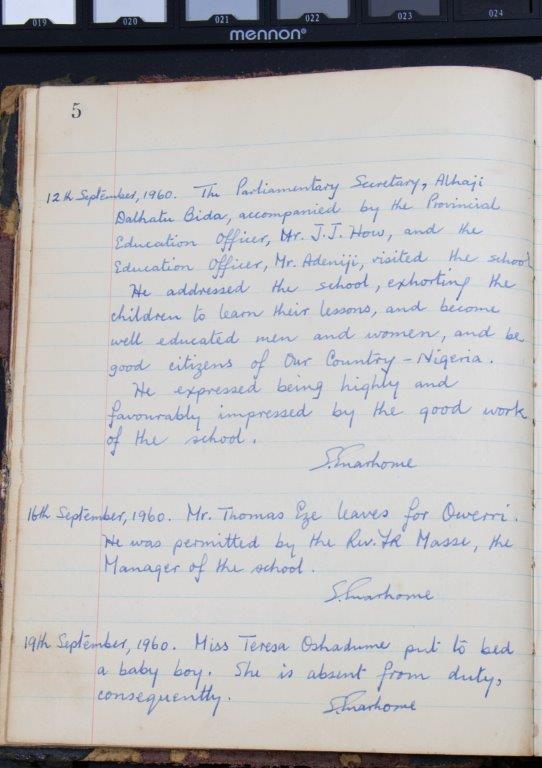 019 020 021 022 023 024
mennon®
5
12th September, 1960. The Parliamentary Secretary, Alhaji
Dalhatu Bida, accompanied by the Provincial
Education Officer, Mr. J.J. How, and the
Education Officer, Mr. Adeniji, visited the school
He addressed the school, exhorting the
children to learn their lessons, and become
well educated men and women, and be
good citizens of Our Country - Nigeria.
He expressed being highly and
favourably impressed by the good work
of the school.
16th September, 1960. Mr. Thomas Eze leaves for Owerri.
He was permitted by the Rev. FR Masse, the
Manager of the school.
19th September, 1960. Miss Teresa Oshadume put to bed
a baby boy. She is absent from duty,
consequently.